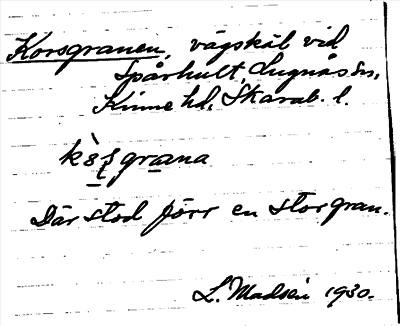 Korsgranen, vägskäl vid
Spårhult, Lugnås sn,
Kinne hd, Skarab. l.
graana
Där stod förr en stor gran.
L. Madsén 1930.